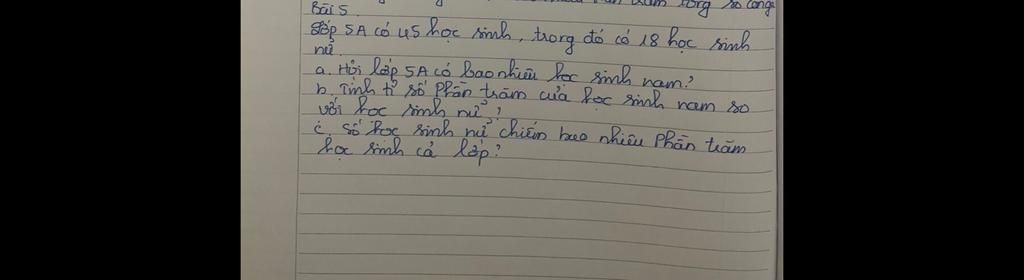 trăm tổng số công
Bài 5.
Lớp 5A có 45 học sinh, trong đó có 18 học sinh
nữ.
a. Hỏi lớp 5A có bao nhiêu học sinh nam?
b. Tính tỉ số phần trăm của học sinh nam so
với học sinh nữ?
c. Số học sinh nữ chiếm bao nhiêu phần trăm
học sinh cả lớp?